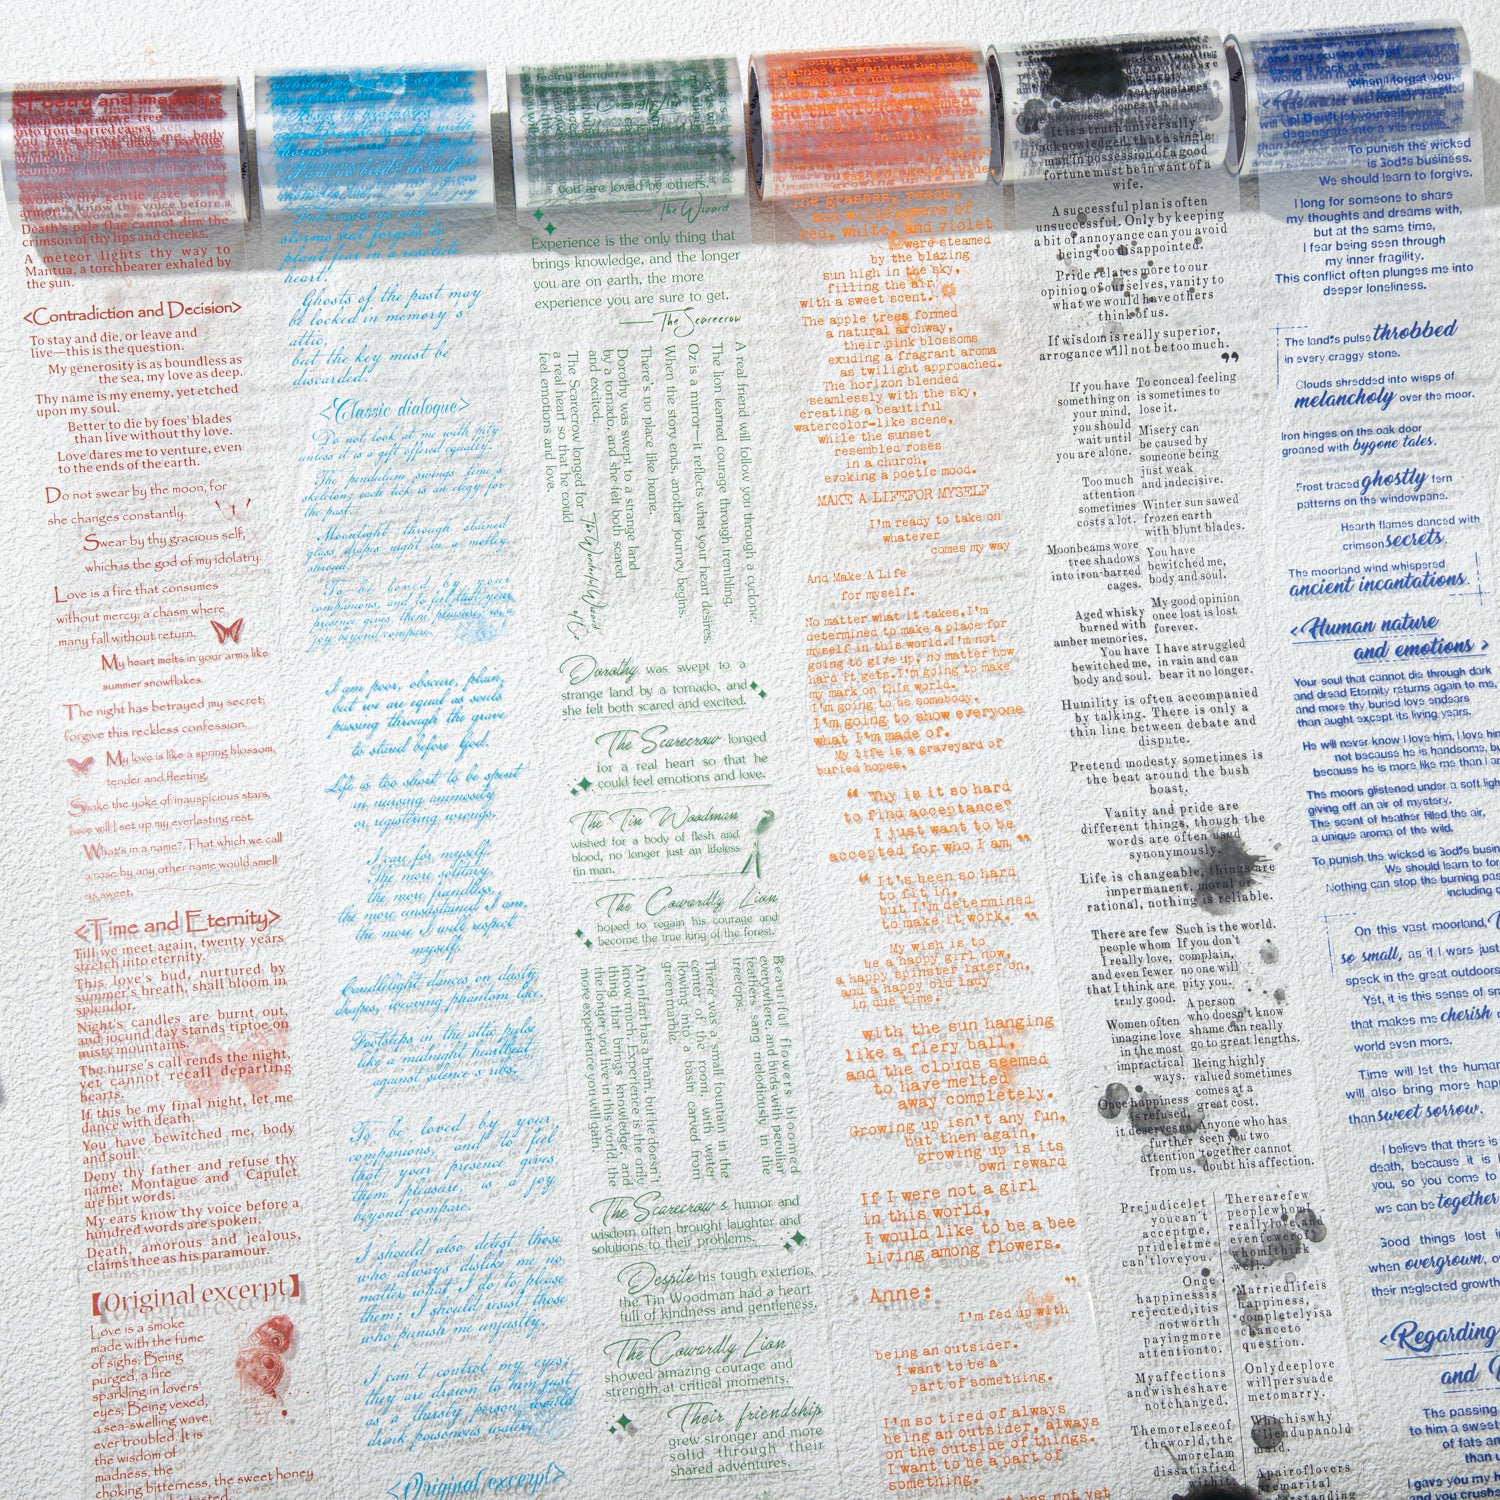 <Poetry and imagery>
Moonbeams wove tree shadows
into iron-barred cages.
You have bewitched me, body
reunion.
swords, thy gentle gaze is my
armor.
Death's pale flag cannot dim the
crimson of thy lips and cheeks.
A meteor lights thy way to
Mantua, a torchbearer exhaled by
the sun.
<Contradiction and Decision>
To stay and die, or leave and
live—this is the question.
My generosity is as boundless as
the sea, my love as deep.
Thy name is my enemy, yet etched
upon my soul.
Better to die by foes' blades
than live without thy love.
Love dares me to venture, even
to the ends of the earth.
Do not swear by the moon, for
she changes constantly.
Swear by thy gracious self,
which is the god of my idolatry.
Love is a fire that consumes
without mercy; a chasm where,
many fall without return.
My heart melts in your arms like
summer snowflakes.
The night has betrayed my secret;
forgive this reckless confession.
My love is like a spring blossom,
tender and fleeting.
Shake the yoke of inauspicious stars,
here will I set up my everlasting rest.
What's in a name? That which we call
a rose by any other name would smell
as sweet.
<Time and Eternity>
Till we meet again, twenty years
stretch into eternity.
This love's bud, nurtured by
summer's breath, shall bloom in
splendor.
Night's candles are burnt out,
and jocund day stands tiptoe on
misty mountains.
The nurse's call rends the night,
yet cannot recall departing
hearts.
If this be my final night, let me
dance with death.
You have bewitched me, body
and soul.
Deny thy father and refuse thy
name; Montague and Capulet
are but words.
My ears know thy voice before a
hundred words are spoken.
Death, amorous and jealous,
claims thee as his paramour.
【Original excerpt】
Love is a smoke
made with the fume
of sighs; Being
purged, a fire
sparkling in lovers'
eyes; Being vexed,
a sea-swelling wave,
ever troubled. It is
the wisdom of
madness, the
choking bitterness, the sweet honey
I am no bird; no net
Fate wafts us into
storms but forgets to
plant fear in a resolute
heart.
Ghosts of the past may
be locked in memory's
attic,
but the key must be
discarded.
<Classic dialogue>
Do not look at me with pity
unless it is a gift offered equally.
The pendulum swings time's
skeleton; each tick is an elegy for
the past.
Moonlight through stained
glass drapes night in a motley
shroud.
To be loved by your
companions, and to feel that your
presence gives them pleasure, is a
joy beyond compare.
I am poor, obscure, plain,
but we are equal as souls
passing through the grave
to stand before God.
Life is too short to be spent
in nursing animosity
or registering wrongs.
I care for myself.
The more solitary,
the more friendless,
the more unsustained I am,
the more I will respect
myself.
Candlelight dances on dusty
drapes, weaving phantom lace.
Footsteps in the attic pulse
like a midnight heartbeat
against silence's ribs.
To be loved by your
companions, and to feel
that your presence gives
them pleasure, is a joy
beyond compare.
I should also detest those
who always dislike me no
matter what I do to please
them; I should resist those
who punish me unjustly.
I can't control my eyes;
they are drawn to him just
as a thirsty person would
drink poisonous water.
<Original excerpt>
you are loved by others.
—The Wizard
Experience is the only thing that
brings knowledge, and the longer
you are on earth, the more
experience you are sure to get.
—The Scarecrow
A real friend will follow you through a cyclone.
The lion learned courage through trembling.
Oz is a mirror—it reflects what your heart desires.
When the story ends, another journey begins.
There's no place like home.
Dorothy was swept to a strange land
by a tornado, and she felt both scared
and excited.
The Scarecrow longed for
a real heart so that he could
feel emotions and love.
The Wonderful Wizard
of Oz
Dorothy was swept to a
strange land by a tornado, and
she felt both scared and excited.
The Scarecrow longed
for a real heart so that he
could feel emotions and love.
The Tin Woodman
wished for a body of flesh and
blood, no longer just an lifeless
tin man.
The Cowardly Lion
hoped to regain his courage and
become the true king of the forest.
Beautiful flowers bloomed
everywhere, and birds with peculiar
feathers sang melodiously in the
treetops.
There was a small fountain in the
center of the room, with water
flowing into a basin carved from
green marble.
An infant has a brain, but he doesn't
know much. Experience is the only
thing that brings knowledge, and
the longer you live in this world, the
more experience you will gain.
The Scarecrow's humor and
wisdom often brought laughter and
solutions to their problems.
Despite his tough exterior,
the Tin Woodman had a heart
full of kindness and gentleness.
The Cowardly Lion
showed amazing courage and
strength at critical moments.
Their friendship
grew stronger and more
solid through their
shared adventures.
The grasses, reeds,
and wildflowers of
red, white, and violet
were steamed
by the blazing
sun high in the sky,
filling the air
with a sweet scent.
The apple trees formed
a natural archway,
their pink blossoms
exuding a fragrant aroma
as twilight approached.
The horizon blended
seamlessly with the sky,
creating a beautiful
watercolor-like scene,
while the sunset
resembled roses
in a church,
evoking a poetic mood.
MAKE A LIFEFOR MYSELF
I'm ready to take on
whatever
comes my way
And Make A Life
for myself.
No matter what it takes,I'm
determined to make a place for
myself in this world.I'm not
going to give up, no matter how
hard it gets.I'm going to make
my mark on this world.
I'm going to be somebody.
I'm going to show everyone
what I'm made of.
My life is a graveyard of
buried hopes.
“ Why is it so hard
to find acceptance?
I just want to be
accepted for who I am.”
“ It's been so hard
to fit in,
but I'm determined
to make it work. ”
My wish is to
be a happy girl now,
a happy spinster later on,
and a happy old lady
in due time.
with the sun hanging
like a fiery ball,
and the clouds seemed
to have melted
away completely.
Growing up isn't any fun,
but then again,
growing up is its
own reward
If I were not a girl
in this world,
I would like to be a bee
living among flowers.
”
Anne:
I'm fed up with
being an outsider.
I want to be a
part of something.
I'm so tired of always
being an outsider, always
on the outside of things.
I want to be a part of
something.
It is a truth universally
acknowledged, that a single
man in possession of a good
fortune must be in want of a
wife.
A successful plan is often
unsuccessful. Only by keeping
a bit of annoyance can you avoid
being too disappointed.
Pride relates more to our
opinion of ourselves, vanity to
what we would have others
think of us.
If wisdom is really superior,
arrogance will not be too much.
”
If you have
something on
your mind,
you should
wait until
you are alone.
To conceal feeling
is sometimes to
lose it.
Misery can
be caused by
someone being
just weak
and indecisive.
Too much
attention
sometimes
costs a lot.
Winter sun sawed
frozen earth
with blunt blades.
Moonbeams wove
tree shadows
into iron-barred
cages.
You have
bewitched me,
body and soul.
Aged whisky
burned with
amber memories.
My good opinion
once lost is lost
forever.
You have
bewitched me,
body and soul.
I have struggled
in vain and can
bear it no longer.
Humility is often accompanied
by talking. There is only a
thin line between debate and
dispute.
Pretend modesty sometimes is
the beat around the bush
boast.
Vanity and pride are
different things, though the
words are often used
synonymously.
Life is changeable, things are
impermanent, moral or
rational, nothing is reliable.
There are few
people whom
I really love,
and even fewer
that I think are
truly good.
Such is the world.
If you don't
complain,
no one will
pity you.
Women often
imagine love
in the most
impractical
ways.
A person
who doesn't know
shame can really
go to great lengths.
Being highly
valued sometimes
comes at a
great cost.
Once happiness
is refused,
it deserves no
further
attention
from us.
Anyone who has
seen you two
together cannot
doubt his affection.
Prejudicelet
youcan't
acceptme,
prideletme
can'tloveyou.
Therearefew
peoplewhomI
reallylove,and
evenfewerof
whomIthink
well.
Once
happinessis
rejected,itis
notworth
payingmore
attentionto.
Marriedlifeis
happiness,
completelyisa
chanceto
question.
Myaffections
andwisheshave
notchanged.
Onlydeeplove
willpersuade
metomarry.
ThemoreIseeof
theworld,the
moreIam
dissatisfied
withit
Whichiswhy
I'llendupanold
maid.
Apairoflovers
premarital
To punish the wicked
is God's business.
We should learn to forgive.
I long for someone to share
my thoughts and dreams with,
but at the same time,
I fear being seen through
my inner fragility.
This conflict often plunges me into
deeper loneliness.
The land's pulse throbbed
in every craggy stone.
Clouds shredded into wisps of
melancholy over the moor.
Iron hinges on the oak door
groaned with bygone tales.
Frost traced ghostly fern
patterns on the windowpane.
Hearth flames danced with
crimson secrets.
The moorland wind whispered
ancient incantations.
<Human nature
and emotions >
Your soul that cannot die through dark
and dread Eternity returns again to me,
and more thy buried love endears
than aught except its living years.
He will never know I love him, I love him
not because he is handsome, but
because he is more like me than I am
The moors glistened under a soft light,
giving off an air of mystery.
The scent of heather filled the air,
a unique aroma of the wild.
To punish the wicked is God's business
We should learn to
Nothing can stop the burning
including
On this vast moorland,
so small, as if I were just
speck in the great outdoors
Yet, it is this sense of
that makes me cherish
world even more.
Time will let the human
will also bring more
than sweet sorrow.
I believe that there is
death, because it is
you, so you come to
we can be together
Good things lost in
when overgrown,
their neglected growth
<Regarding
and
The passing
to him a sweet
of fate an
than
I gave you my
and you crushed